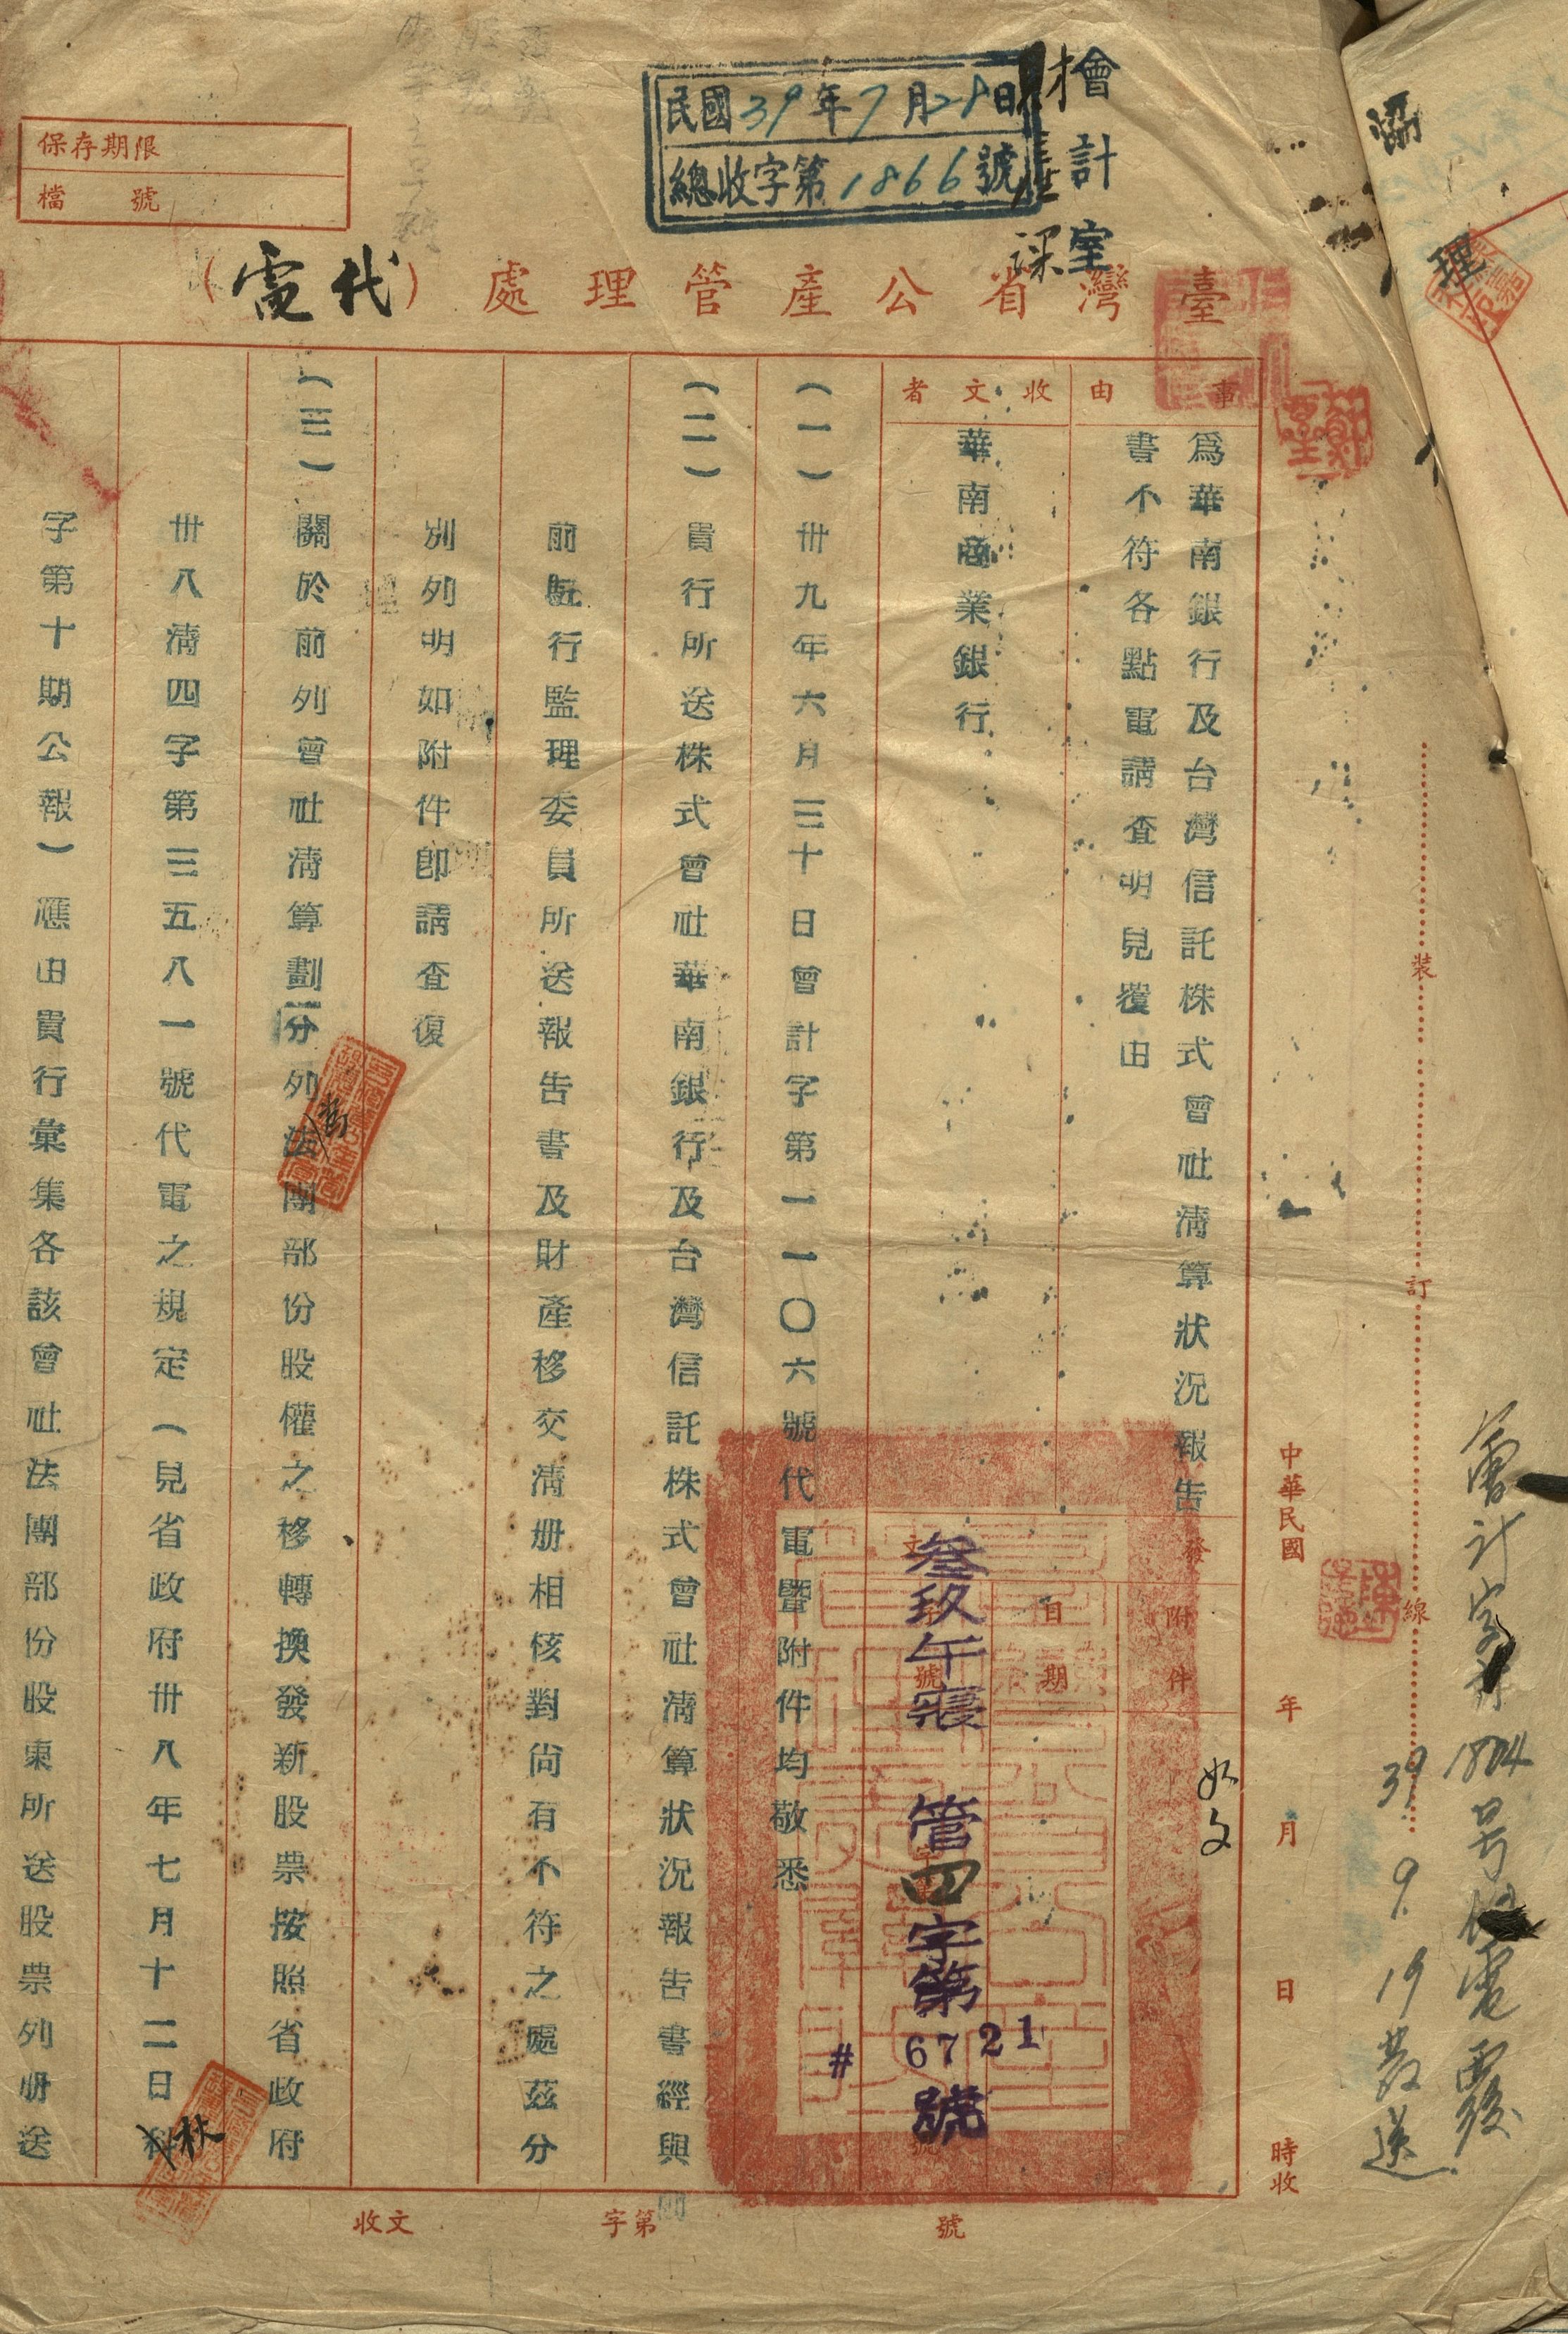 民國39年7月28日
總收字第1866號
會計室
保存期限
檔號
臺灣省公產管理處（代電）
事由
為華南銀行及台灣信託株式會社清算狀況報告
書不符各點電請查明見覆由
收文者
華南商業銀行
發文
附件
如文
日期
字號
叁玖午寢
管四字第6721號
#
（一）卅九年六月三十日會計字第一一〇六號代電暨附件均敬悉
（二）貴行所送株式會社華南銀行及台灣信託株式會社清算狀況報告書經與
前駐行監理委員所送報告書及財產移交清册相核對尚有不符之處茲分
別列明如附件卽請查復
（三）關於前列會社清算劃分列法團部份股權之移轉換發新股票按照省政府
卅八清四字第三五八一號代電之規定（見省政府卅八年七月十二日秋
字第十期公報）應由貴行彙集各該會社法團部份股東所送股票列册送
裝
訂
線
中華民國 年 月 日 時收
會計字第1804号代電覆
39.9.19發送
收文 字第 號
理